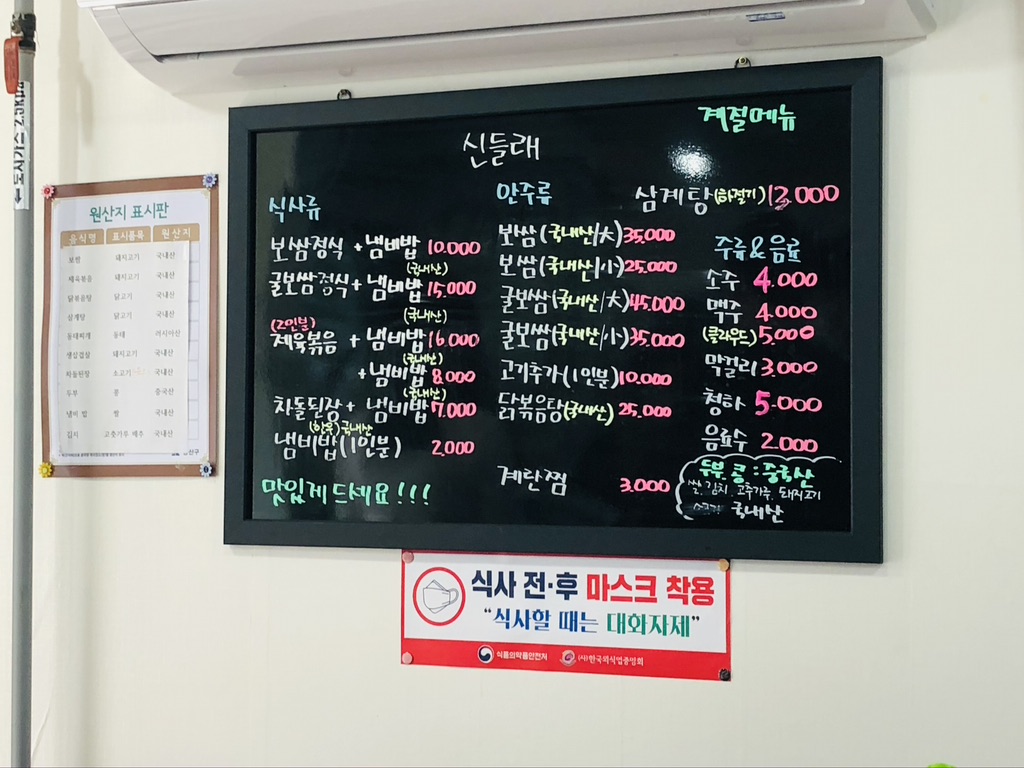 도시가스 2.5kPa
원산지 표시판
음식명 표시품목 원산지
보쌈 돼지고기 국내산
제육볶음 돼지고기 국내산
닭볶음탕 닭고기 국내산
삼계탕 닭고기 국내산
동태찌개 동태 러시아산
생삼겹살 돼지고기 국내산
차돌된장 소고기 국내산
두부 콩 중국산
냄비 밥 쌀 국내산
김치 고춧가루 배추 국내산
신들래
식사류
보쌈정식 + 냄비밥 10.000
(국내산)
굴보쌈정식 + 냄비밥 15.000
(국내산)
(2인분)
제육볶음 + 냄비밥 16.000
(국내산)
+냄비밥 8.000
(국내산)
차돌된장 + 냄비밥 7.000
(한우)국내산
냄비밥(1인분) 2.000
맛있게 드세요!!!
안주류
보쌈(국내산/大) 35.000
보쌈(국내산/小) 25.000
굴보쌈(국내산/大) 45.000
굴보쌈(국내산/小) 35.000
고기추가(1인분) 10.000
닭볶음탕(국내산) 25.000
계란찜 3.000
계절메뉴
삼계탕(하절기) 13.000
주류&음료
소주 4.000
맥주 4.000
(클라우드) 5.000
막걸리 3.000
청하 5.000
음료수 2.000
두부.콩:중국산
쌀.김치.고추가루.돼지고기
국내산
식사 전·후 마스크 착용
"식사할 때는 대화자제"
식품의약품안전처 (사)한국외식업중앙회